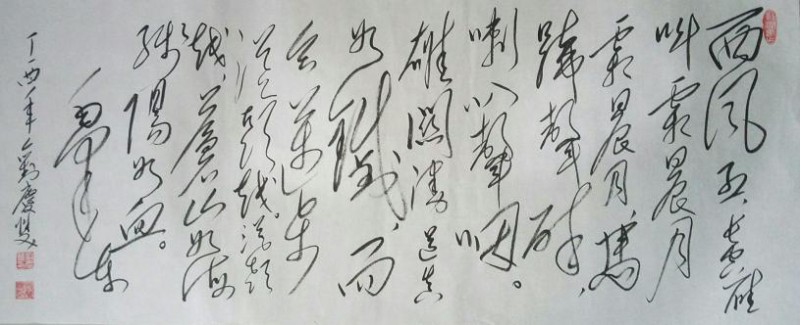 西風烈，長空雁
叫霜晨月
霜晨月，馬
蹄聲碎，
喇叭聲咽。
雄關漫道真
如鐵，而
今邁步
從頭越。從頭
越，蒼山如海
殘陽如血。
毛澤東
丁酉年劉慶